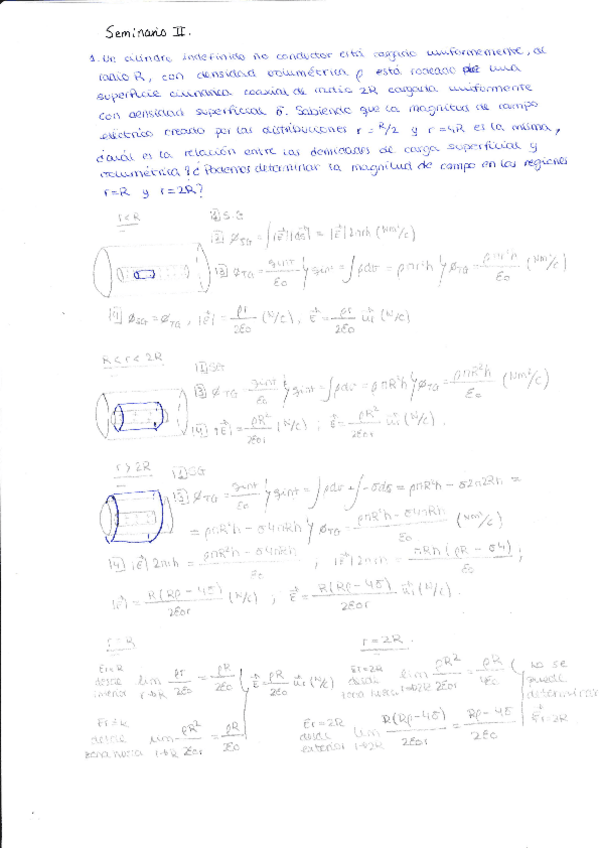 Seminario II.
1. Un cilindro indefinido no conductor está cargado uniformemente, de
radio R, con densidad volumétrica ρ está rodeado por una
superficie cilíndrica coaxial de radio 2R cargada uniformemente
con densidad superficial σ. Sabiendo que la magnitud de campo
eléctrico creado por las distribuciones r = R/2 y r = 4R es la misma,
¿cuál es la relación entre las densidades de carga superficial y
volumétrica? ¿Podemos determinar la magnitud de campo en las regiones
r=R y r=2R?
r<R
2 S.G
|E| 2πrh (Nm²/C)
Φ_TG = qint/ε0 y qint = ∫ρdv = ρπr²h y Φ_TG = ρπr²h/ε0 (Nm²/C)
4 Φ_SG = Φ_TG , |E| = ρr/2ε0 (N/C), E = ρr/2ε0 ur (N/C)
R<r<2R
1 SG
3 Φ_TG = qint/ε0 y qint = ∫ρdv = ρπR²h y Φ_TG = ρπR²h/ε0 (Nm²/C)
4 |E| = ρR²/2ε0r (N/C) ; E = ρR²/2ε0r ur (N/C).
r>2R
SG
3 Φ_TG = qint/ε0 y qint = ∫ρdv + ∫-σds = ρπR²h - σ2π2Rh =
= ρπR²h - σ4πRh y Φ_TG = ρπR²h - σ4πRh/ε0 (Nm²/C)
4 |E| 2πrh = ρπR²h - σ4πRh/ε0 ; |E| 2πrh = πRh (ρR - σ4)/ε0 ;
|E| = R(Rρ-4σ)/2ε0r (N/C) ; E = R(Rρ-4σ)/2ε0r ur (N/C).
r=R
r=2R.
Er=R desde interior lim r→R ρr/2ε0 = ρR/2ε0
E = ρR/2ε0 ur (N/C)
Er=R desde lim r→R ρR²/2ε0r = ρR/2ε0
Er=2R desde lim r→2R ρR²/2ε0r = ρR/4ε0
Er=2R desde exterior lim r→2R R(Rρ-4σ)/2ε0r = Rρ-4σ/2ε0
no se puede determinar
Er=2R